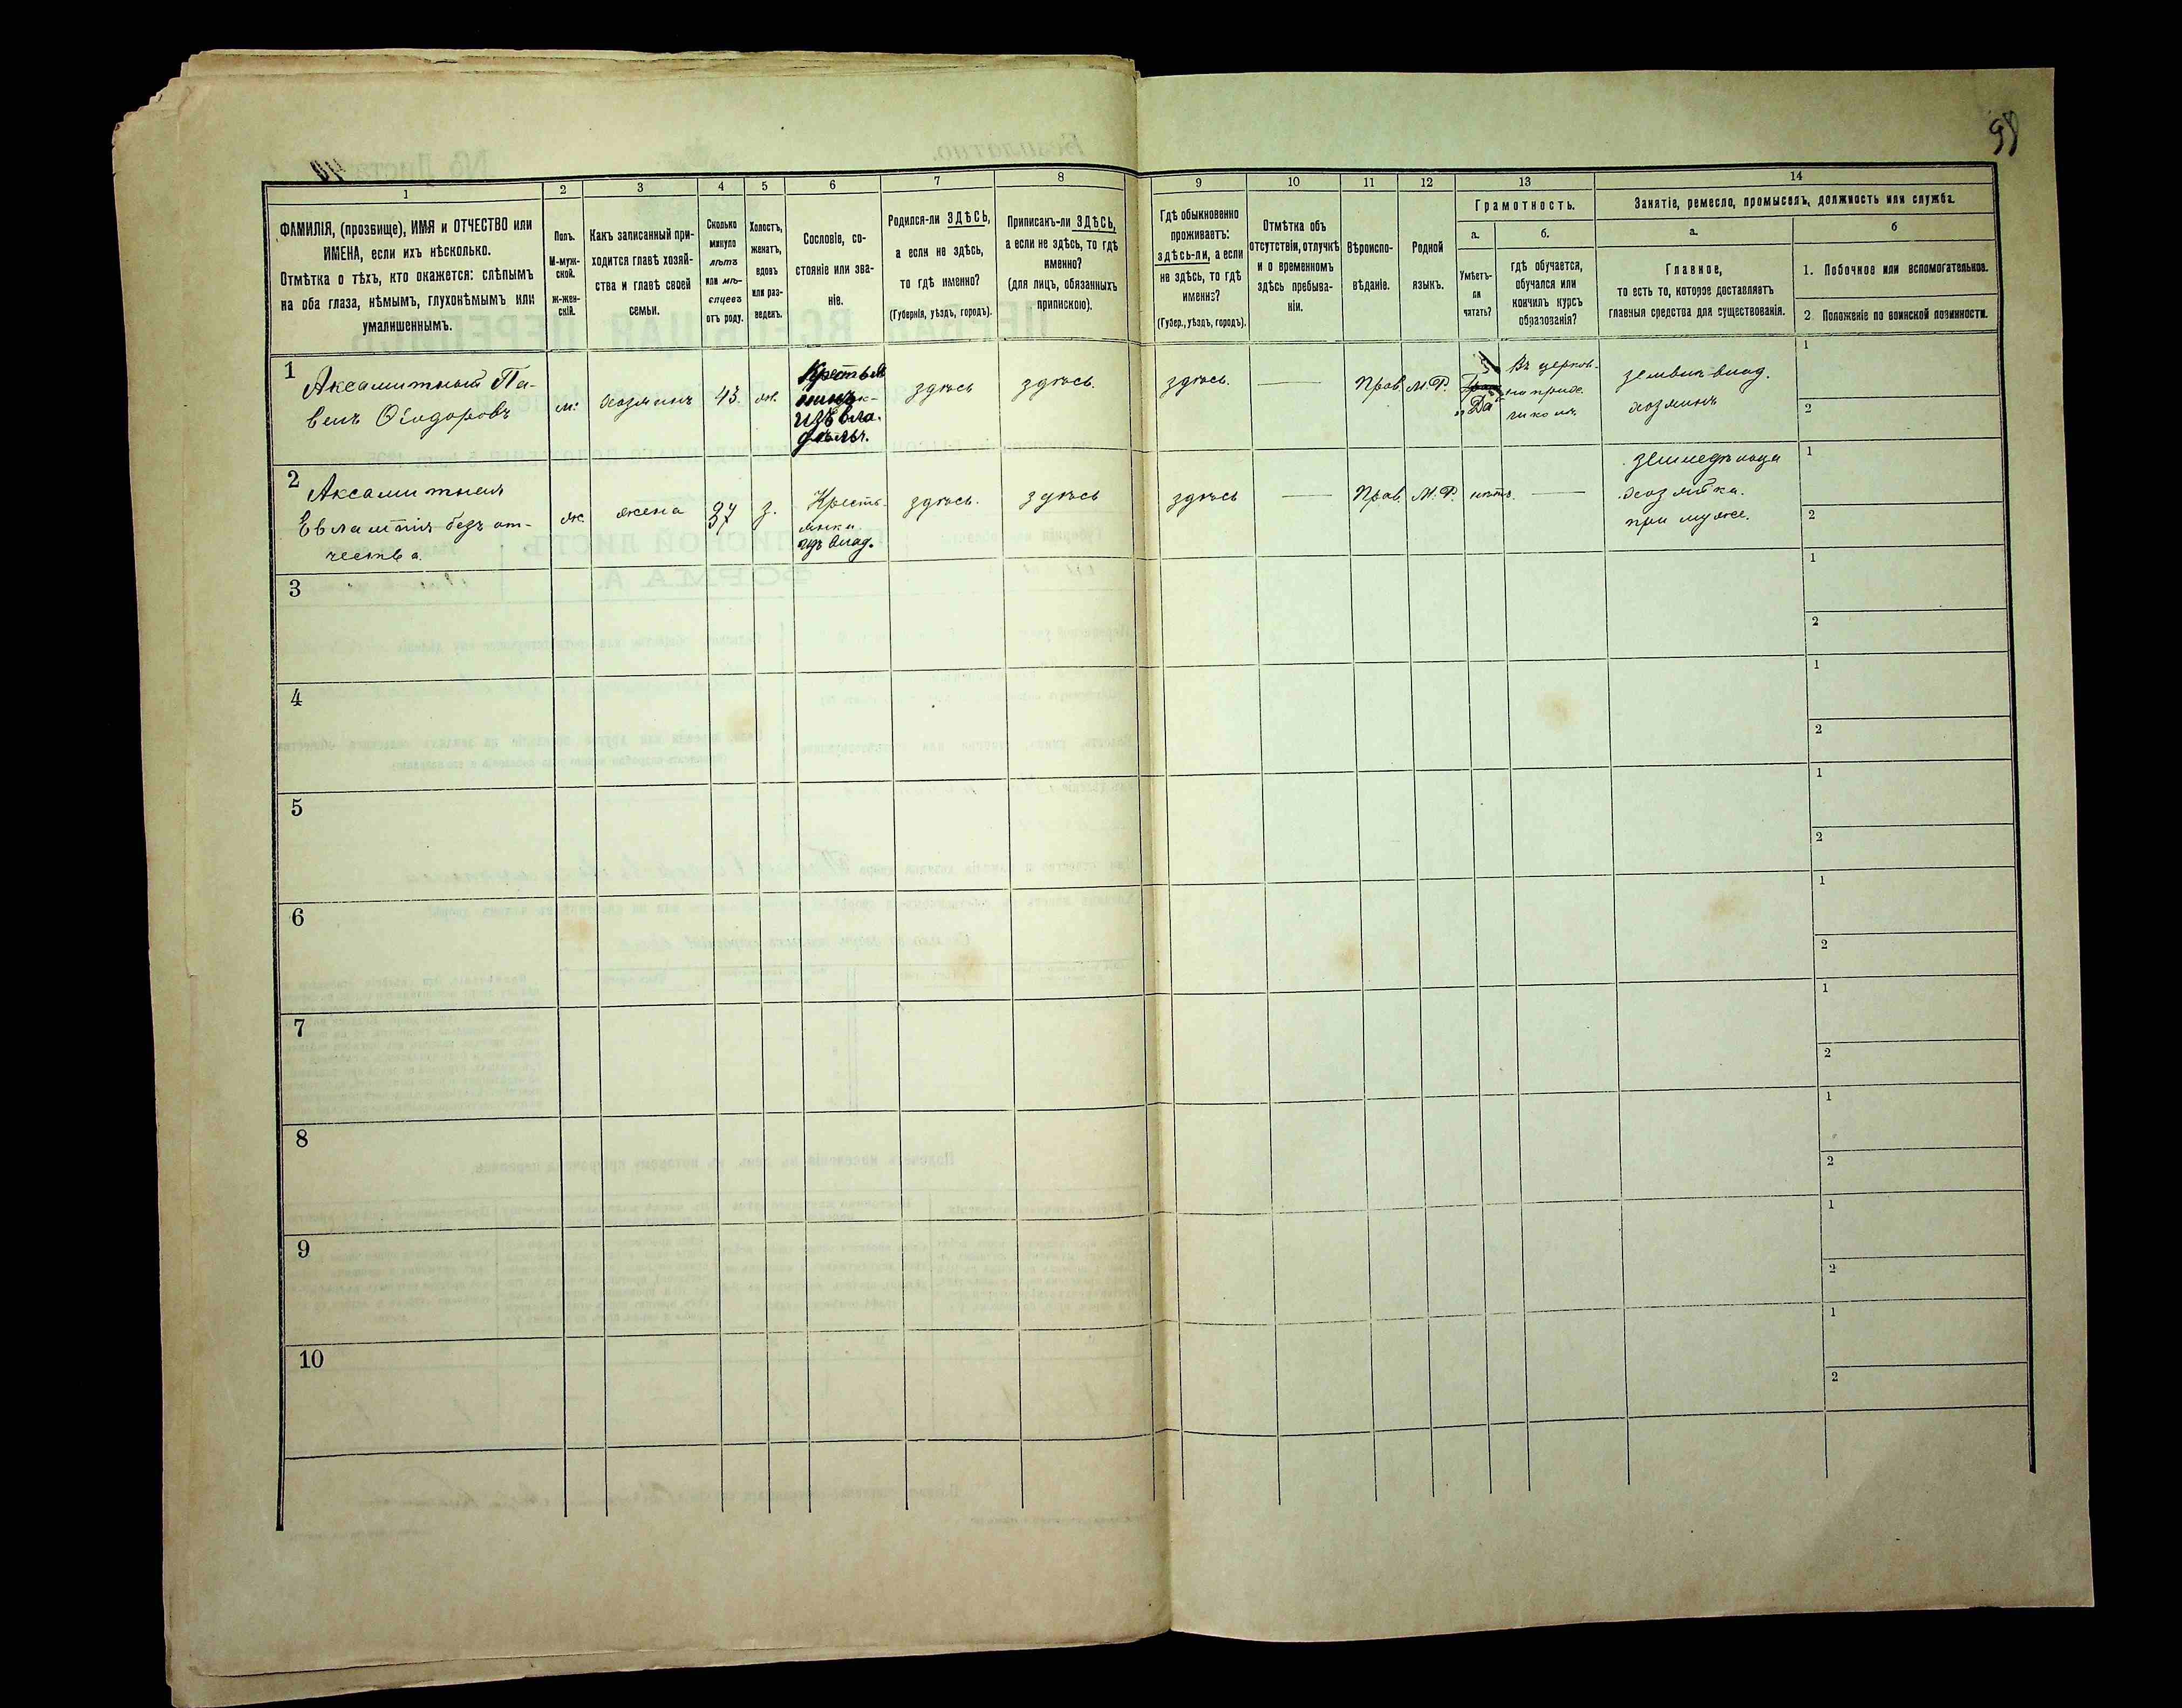 98
1
2
3
4
5
6
7
8
9
10
11
12
13
14
ФАМИЛІЯ, (прозвище), ИМЯ и ОТЧЕСТВО или
ИМЕНА, если ихъ нѣсколько.
Отмѣтка о тѣхъ, кто окажется: слѣпымъ
на оба глаза, нѣмымъ, глухонѣмымъ или
умалишеннымъ.
Полъ.
М-муж-
ской.
Ж-жен-
скій.
Какъ записанный при-
ходится главѣ хозяй-
ства и главѣ своей
семьи.
Сколько
минуло
лѣтъ
или мѣ-
сяцевъ
отъ роду.
Холостъ,
женатъ,
вдовъ
или раз-
веденъ.
Сословіе, со-
стояніе или зва-
ніе.
Родился-ли ЗДѢСЬ,
а если не здѣсь,
то гдѣ именно?
(Губернія, уѣздъ, городъ).
Приписанъ-ли ЗДѢСЬ,
а если не здѣсь, то гдѣ
именно?
(для лицъ, обязанныхъ
припискою).
Гдѣ обыкновенно
проживаетъ:
здѣсь-ли, а если
не здѣсь, то гдѣ
именно?
(Губер., уѣздъ, городъ).
Отмѣтка объ
отсутствіи, отлучкѣ
и о временномъ
здѣсь пребыва-
ніи.
Вѣроиспо-
вѣданіе.
Родной
языкъ.
Грамотность.
а.
Умѣетъ-
ли
читать?
б.
гдѣ обучается,
обучался или
кончилъ курсъ
образованія?
Занятіе, ремесло, промыселъ, должность или служба.
а.
Главное,
то есть то, которое доставляетъ
главныя средства для существованія.
б
1. Побочное или вспомогательное.
2. Положеніе по воинской повинности.
1
Аксамитный Па-
велъ Ѳеодоровъ
м.
хозяинъ
43.
ж.
Крестья
изъ вла.
здѣсь
здѣсь.
здѣсь.
Прав.
М. Р.
Да
Въ церков-
земл. влад.
хозяинъ
1
2
2
Аксамитная
Евлампія безъ от-
чества.
ж.
жена
37
з.
Кресть-
янка
изъ влад.
здѣсь.
здѣсь
здѣсь
Прав.
М. Р.
нѣтъ.
хозяйка.
при мужѣ.
1
2
3
1
2
4
1
2
5
1
2
6
1
2
7
1
2
8
1
2
9
1
2
10
1
2